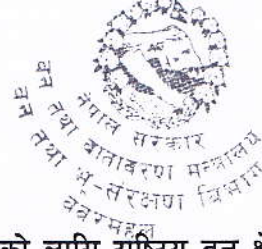 नेपाल सरकार
वन तथा वातावरण मन्त्रालय
वन तथा भू-संरक्षण विभाग
बबरमहल
को लागि राष्ट्रिय वन